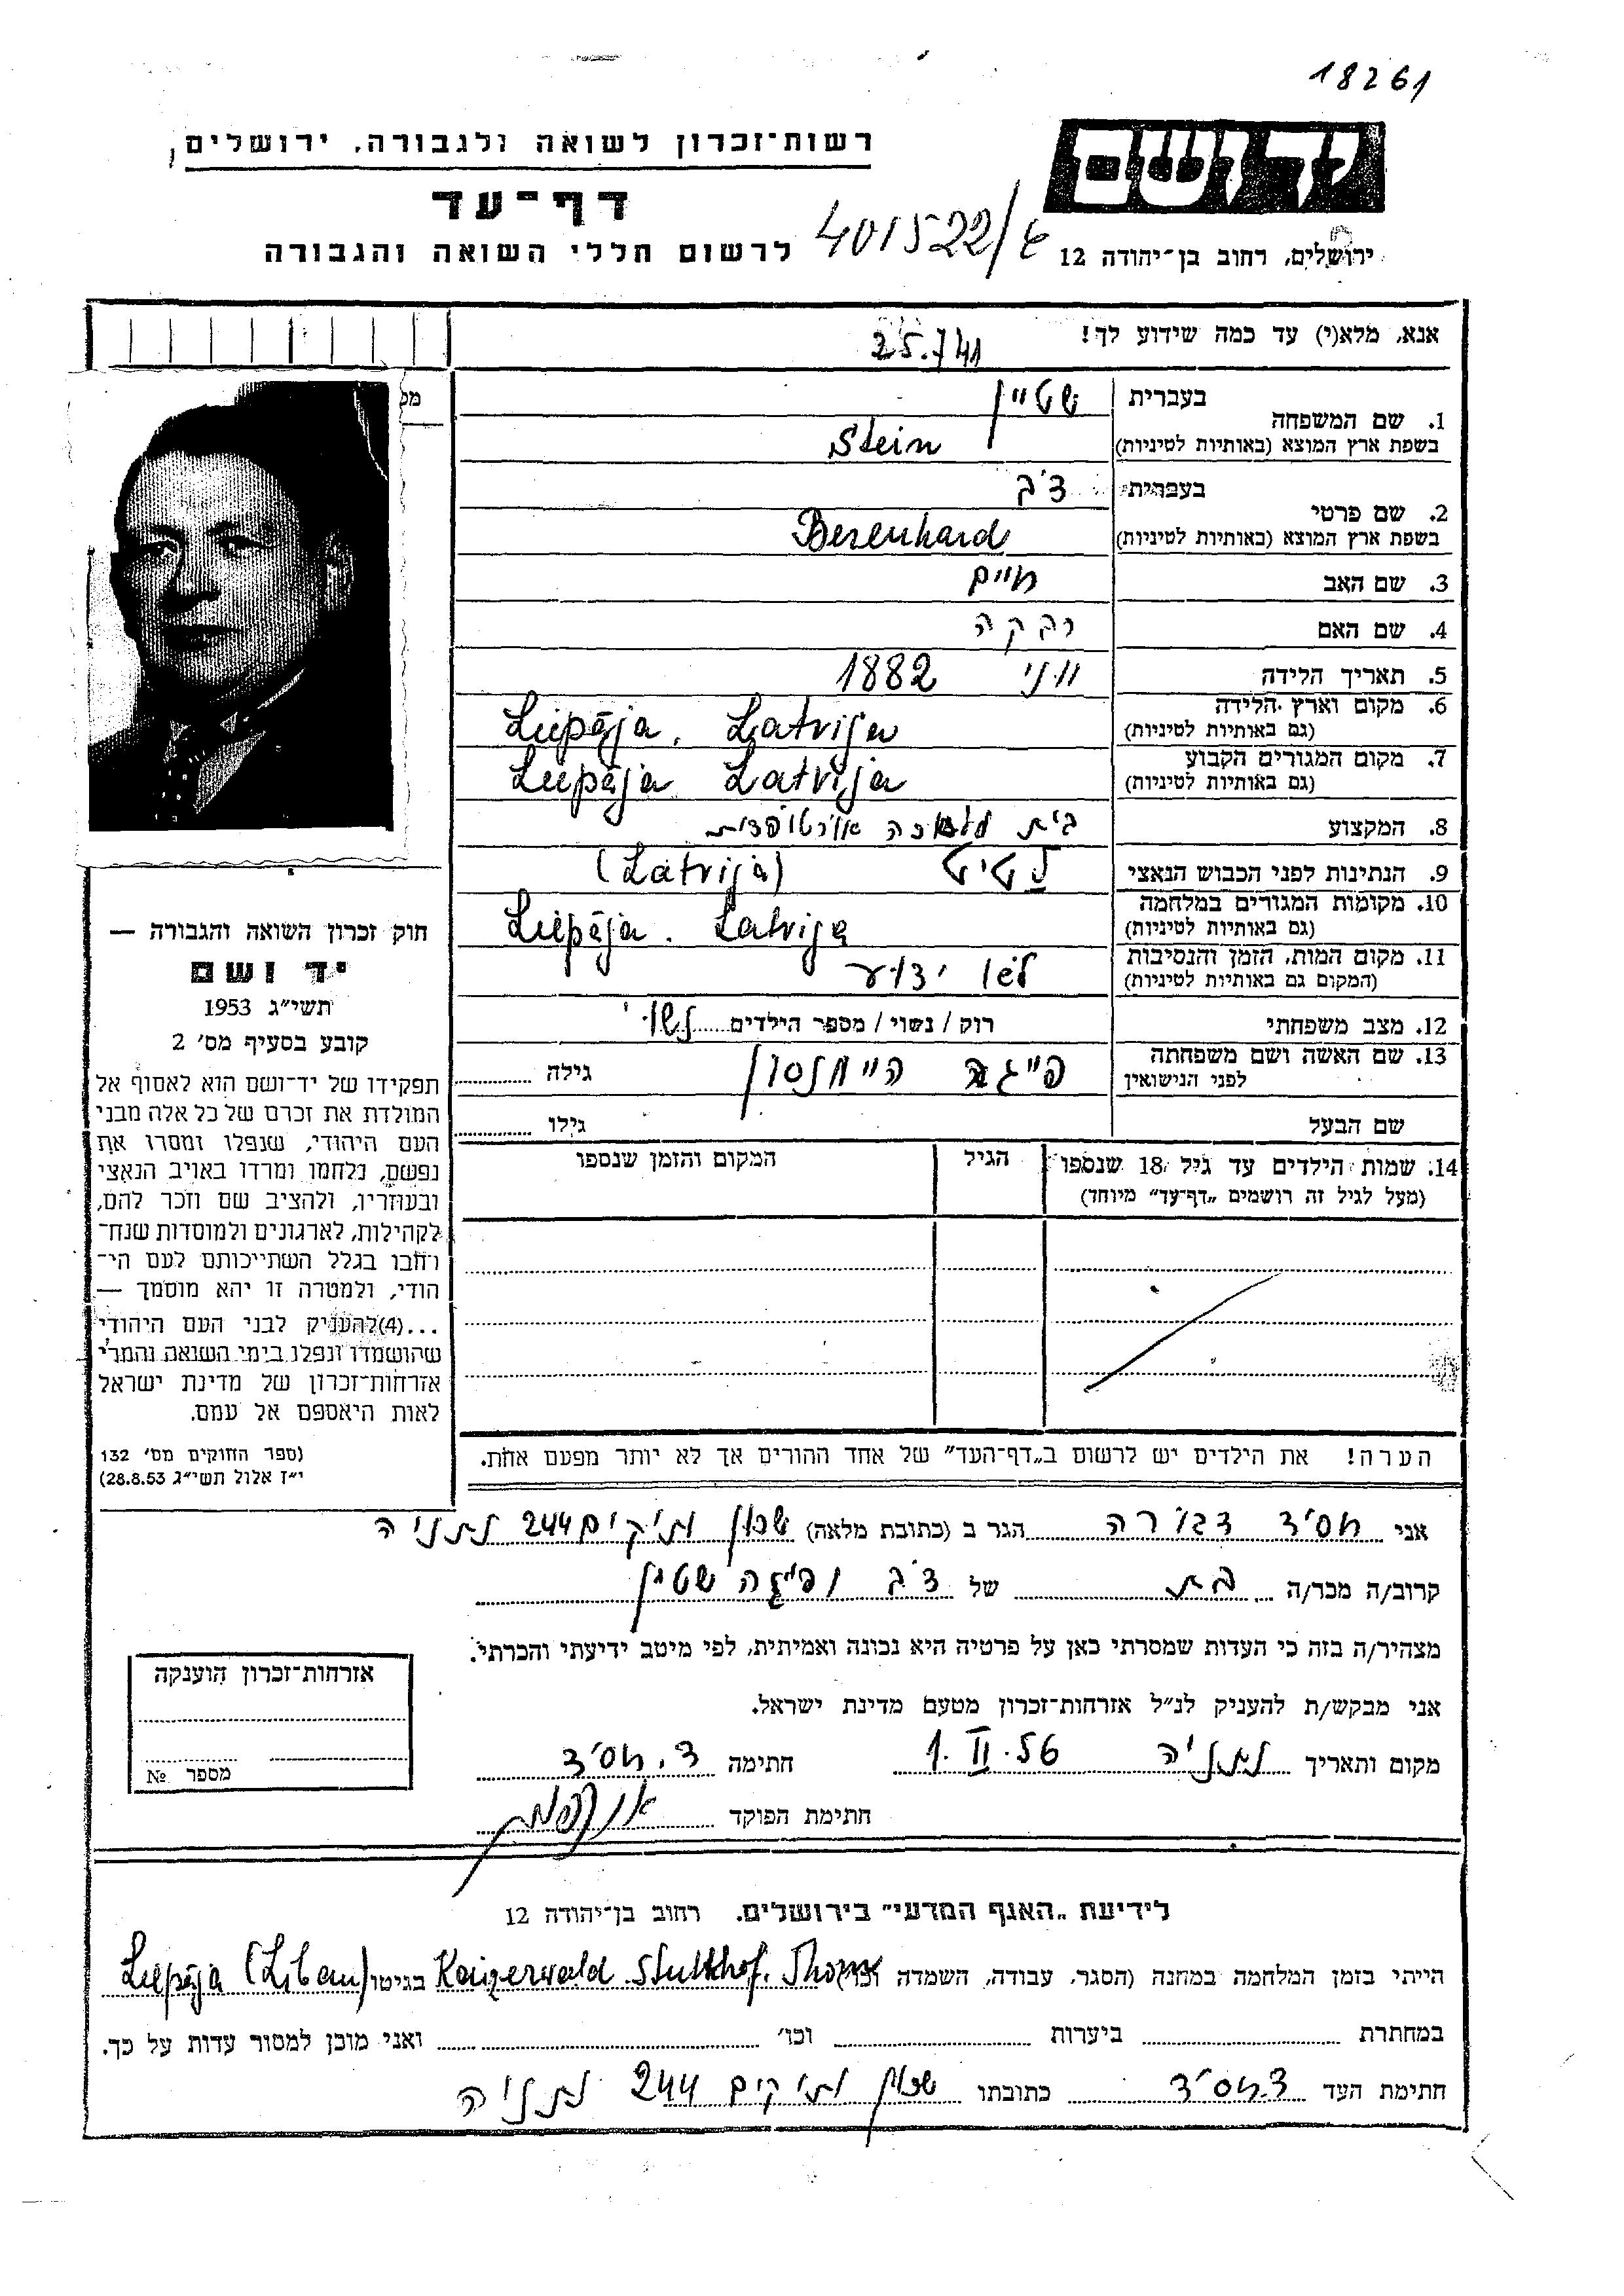 18261
רשות־זכרון לשואה ולגבורה, ירושלים
יד ושם
דף־עד
401522/
לרשום חללי השואה והגבורה
ירושלים, רחוב בן־יהודה 12
אנא, מלא(י) עד כמה שידוע לך!
25.7.41
1. שם המשפחה
בעברית שטיין
בשפת ארץ המוצא (באותיות לטיניות) Stein
2. שם פרטי
בעברית דב
בשפת ארץ המוצא (באותיות לטיניות) Berenhard
3. שם האב חיים
4. שם האם רבקה
5. תאריך הלידה יוני 1882
6. מקום וארץ הלידה
(גם באותיות לטיניות) Liepāja, Latvija
7. מקום המגורים הקבוע
(גם באותיות לטיניות) Liepāja Latvija
8. המקצוע בית מלאכה אורטופדית
9. הנתינות לפני הכבוש הנאצי (Latvija)
10. מקומות המגורים במלחמה
(גם באותיות לטיניות) Liepāja. Latvija
11. מקום המות, הזמן והנסיבות
(המקום גם באותיות לטיניות) לא ידוע
12. מצב משפחתי רוק / נשוי / מספר הילדים נשוי
13. שם האשה ושם משפחתה
לפני הנישואין פייגה היימנסון גילה
שם הבעל גילו
14. שמות הילדים עד גיל 18 שנספו הגיל המקום והזמן שנספו
(מעל לגיל זה רושמים „דף־עד” מיוחד)
הערה! את הילדים יש לרשום ב„דף־העד” של אחד ההורים אך לא יותר מפעם אחת.
חוק זכרון השואה והגבורה —
יד ושם
תשי״ג 1953
קובע בסעיף מס׳ 2
תפקידו של יד־ושם הוא לאסוף אל
המולדת את זכרם של כל אלה מבני
העם היהודי, שנפלו ומסרו את
נפשם, נלחמו ומרדו באויב הנאצי
ובעוזריו, ולהציב שם וזכר להם,
לקהילות, לארגונים ולמוסדות שנח־
רבו בגלל השתייכותם לעם הי־
הודי, ולמטרה זו יהא מוסמך —
...(4)להעניק לבני העם היהודי
שהושמדו ונפלו בימי השואה והמרי
אזרחות־זכרון של מדינת ישראל
לאות היאספם אל עמם.
(ספר החוקים מס׳ 132
י״ז אלול תשי״ג 28.8.53)
אני חסיד דבורה הגר ב (כתובת מלאה) שכון ותיקים 244 נתניה
קרוב/ה מכר/ה בת של דב ופייגה שטיין
מצהיר/ה בזה כי העדות שמסרתי כאן על פרטיה היא נכונה ואמיתית, לפי מיטב ידיעתי והכרתי.
אני מבקש/ת להעניק לנ״ל אזרחות־זכרון מטעם מדינת ישראל.
מקום ותאריך נתניה 1.II.56 חתימה ד. חסיד
חתימת הפוקד
אזרחות־זכרון הוענקה
מספר №
לידיעת „האגף המדעי” בירושלים, רחוב בן־יהודה 12
הייתי בזמן המלחמה במחנה (הסגר, עבודה, השמדה וכו׳) Kaizerwald Stutthof, Thorn בגיטו Liepāja (Libau)
במחתרת ביערות וכו׳ ואני מוכן למסור עדות על כך.
חתימת העד ד. חסיד כתובתו שכון ותיקים 244 נתניה